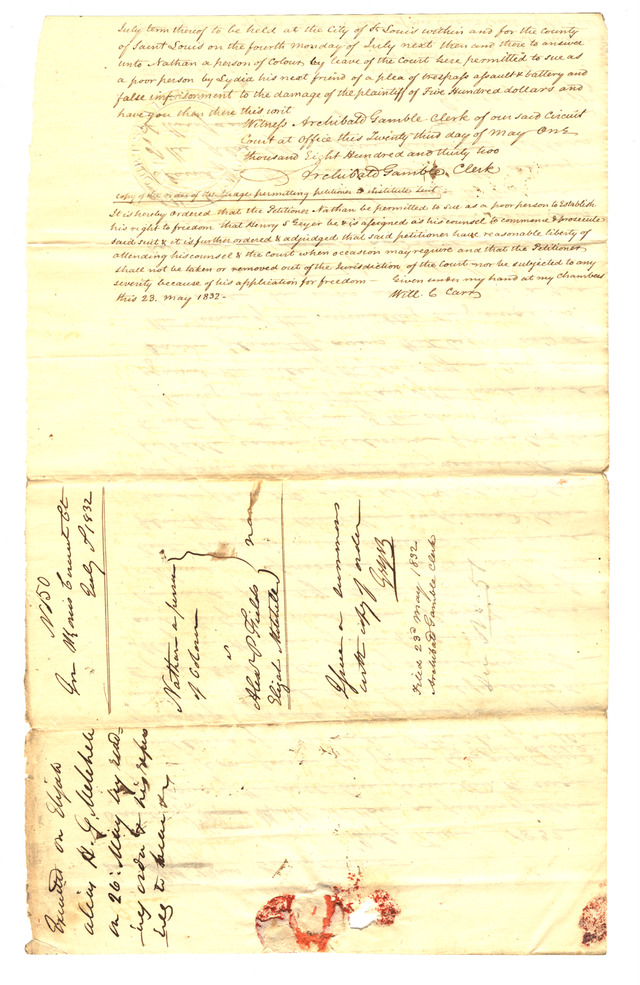 July term thereof to be held at the City of St Louis within and for the county
of Saint Louis on the fourth monday of July next then and there to answer
unto Nathan a person of Colour by leave of the Court here permitted to sue as
a poor person by Lydia his next friend of a plea of trespass assault & battery and
false imprisonment to the damage of the plaintiff of Five Hundred dollars and
have you then there this writ
Witness Archibald Gamble Clerk of our said Circuit
Court at Office this Twenty third day of May One
Thousand Eight Hundred and thirty two
Archibald Gamble, Clerk
Copy of the order of the Judge permitting petitioner to institute Suit
It is hereby ordered that the Petitioner Nathan be permitted to sue as a poor person to Establish
his right to freedom that Henry S Geyer be & is assigned as his counsel to commence & prosecute
said suit & it is further ordered & adjudged that said petitioner have reasonable liberty of
attending his counsel & the Court when occasion may require and that the Petitioner
shall not be taken or removed out of the Jurisdiction of the Court nor be subjected to any
severity because of his application for freedom — Given under my hand at my Chambers
this 23. May 1832 - Will. C Carr
No 50
In St Louis Circuit Ct
July T 1832
Nathan a person
of Colour
vs
Alexd P Fields
Elijah Mitchell
Issue a summons
with copy of order
Geyer
Filed 23d May 1832
Archibald Gamble Clerk
Executed on Elijah
alias A. G. Mitchell
on 26: May by read-
ing order & his refus
al to hear